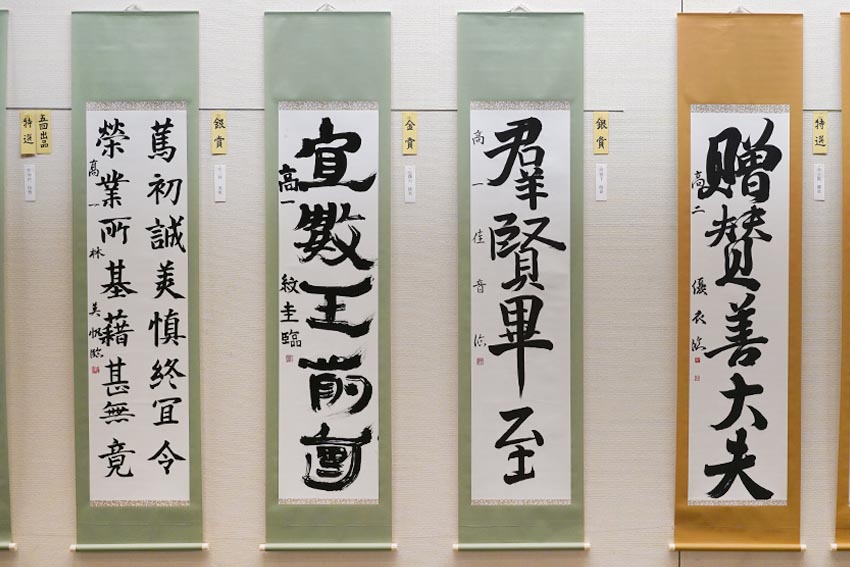 特選
贈賛善大夫
高二 優衣臨
銀賞
羣賢畢至
高一 佳音臨
金賞
宣數王前會
高一 紋圭臨
銀賞
篤初誠美慎終宜令
榮業所基藉甚無竟
高一 林 美帆臨
五回出品
特選